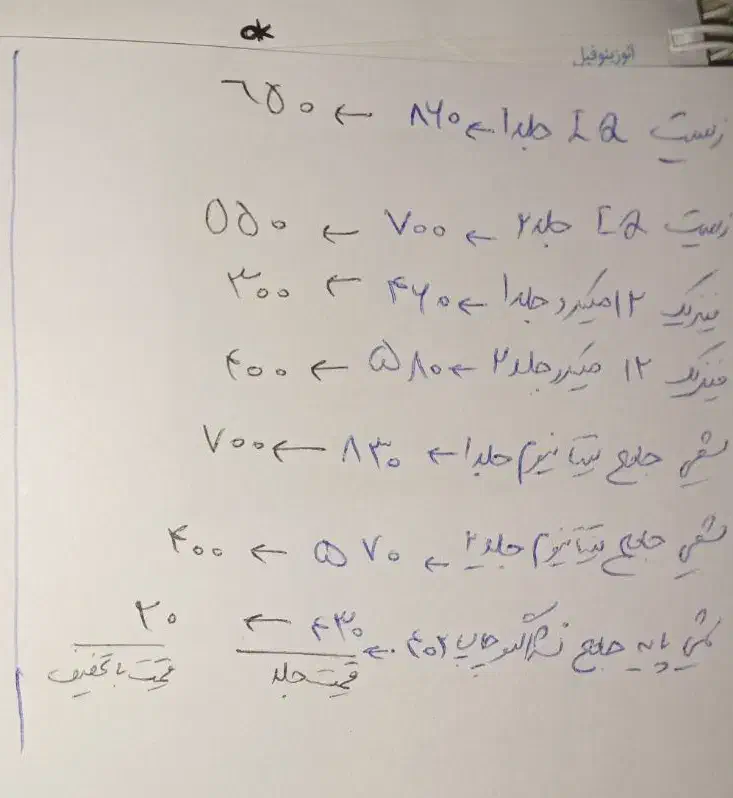 ok
ائوزینوفیل
زیست IQ جلد ۱ ← ۸۶۰ ← ۶۵۰
زیست IQ جلد ۲ ← ۷۰۰ ← ۵۵۰
فیزیک ۱۲ میکرو جلد ۱ ← ۴۶۰ ← ۳۰۰
فیزیک ۱۲ میکرو جلد ۲ ← ۵۸۰ ← ۴۰۰
شیمی جامع تیتانیوم جلد ۱ ← ۸۳۰ ← ۷۰۰
شیمی جامع تیتانیوم جلد ۲ ← ۵۷۰ ← ۴۰۰
شیمی پایه جامع نشرالگو چاپ ۴۰۲ ← ۴۳۰ ← ۲۰
قیمت جلد قیمت با تخفیف